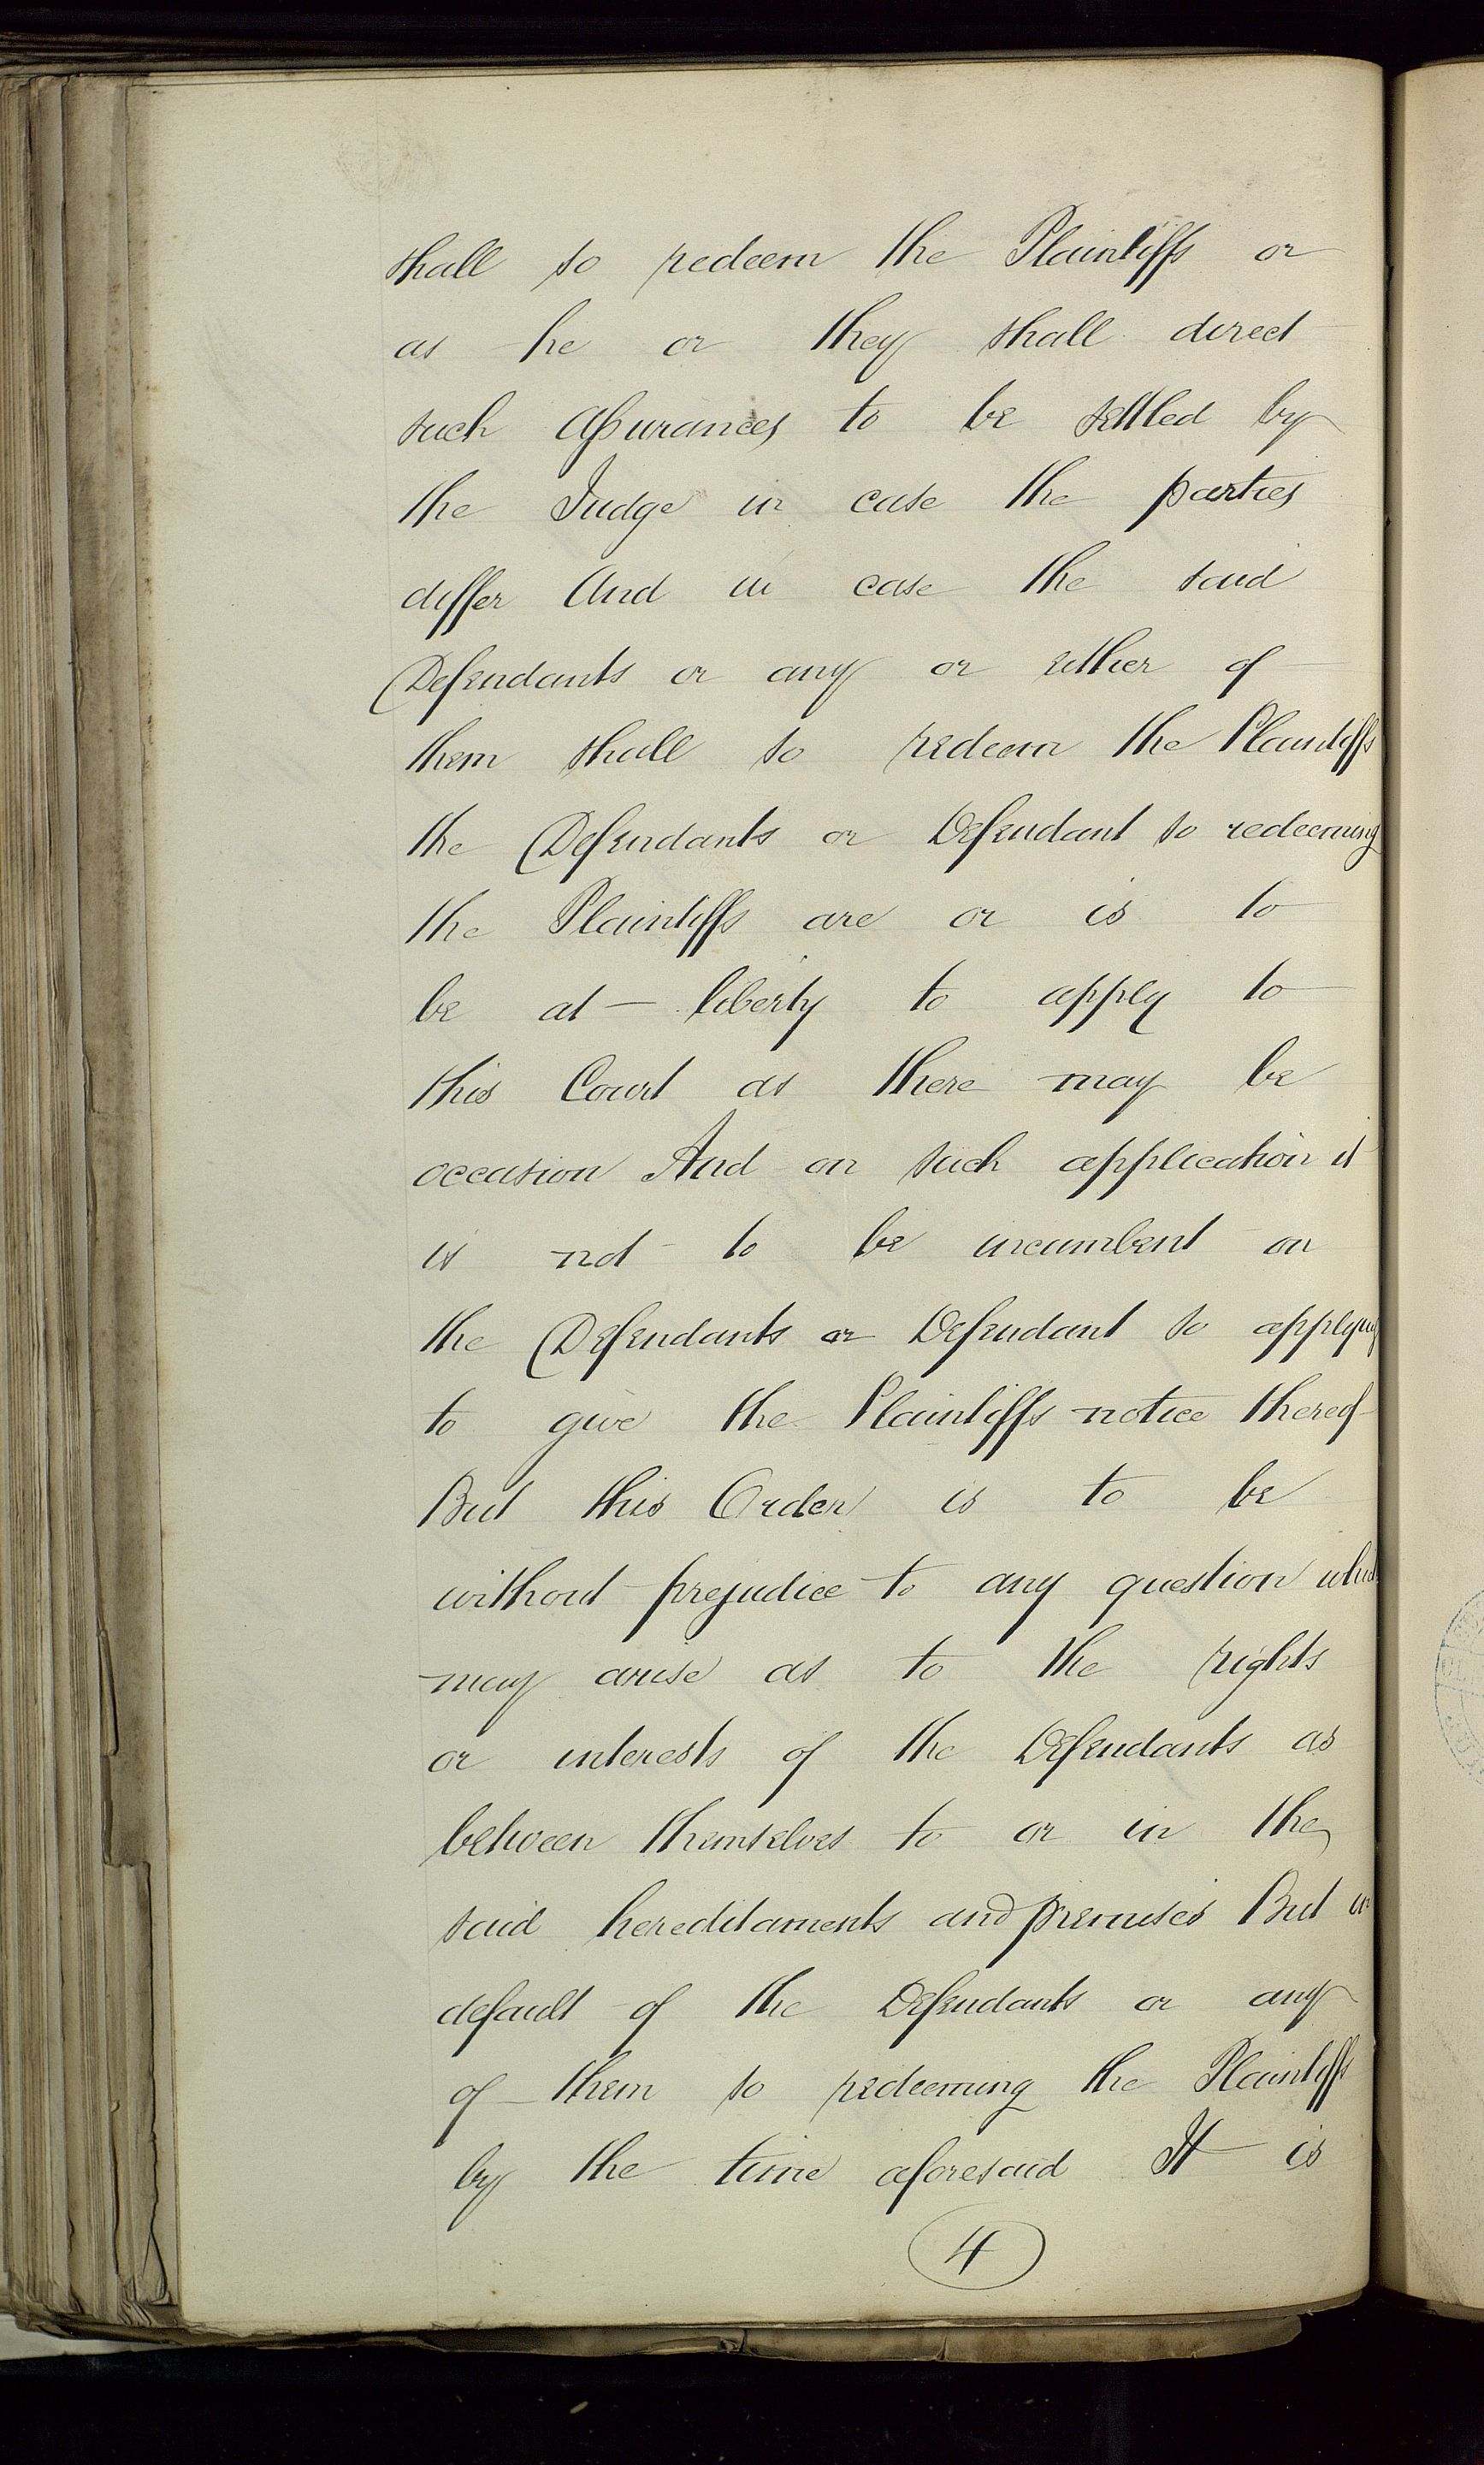 shall so redeem the Plaintiffs or
as he or they shall direct
such Assurances to be settled by
the Judge in case the parties
differ And in case the said
Defendants or any or either of
them shall so redeem the Plaintiffs
the Defendants or Defendant so redeeming
the Plaintiffs are or is to
be at liberty to apply to
this Court as there may be
occasion And on such application it
is not to be incumbent on
the Defendants or Defendant so applying
to give the Plaintiffs notice thereof
But this Order is to be
without prejudice to any question which
may arise as to the rights
or interests of the Defendants as
between themselves to or in the
said hereditaments and premises But in
default of the Defendants or any
of them so redeeming the Plaintiffs
by the time aforesaid It is
4